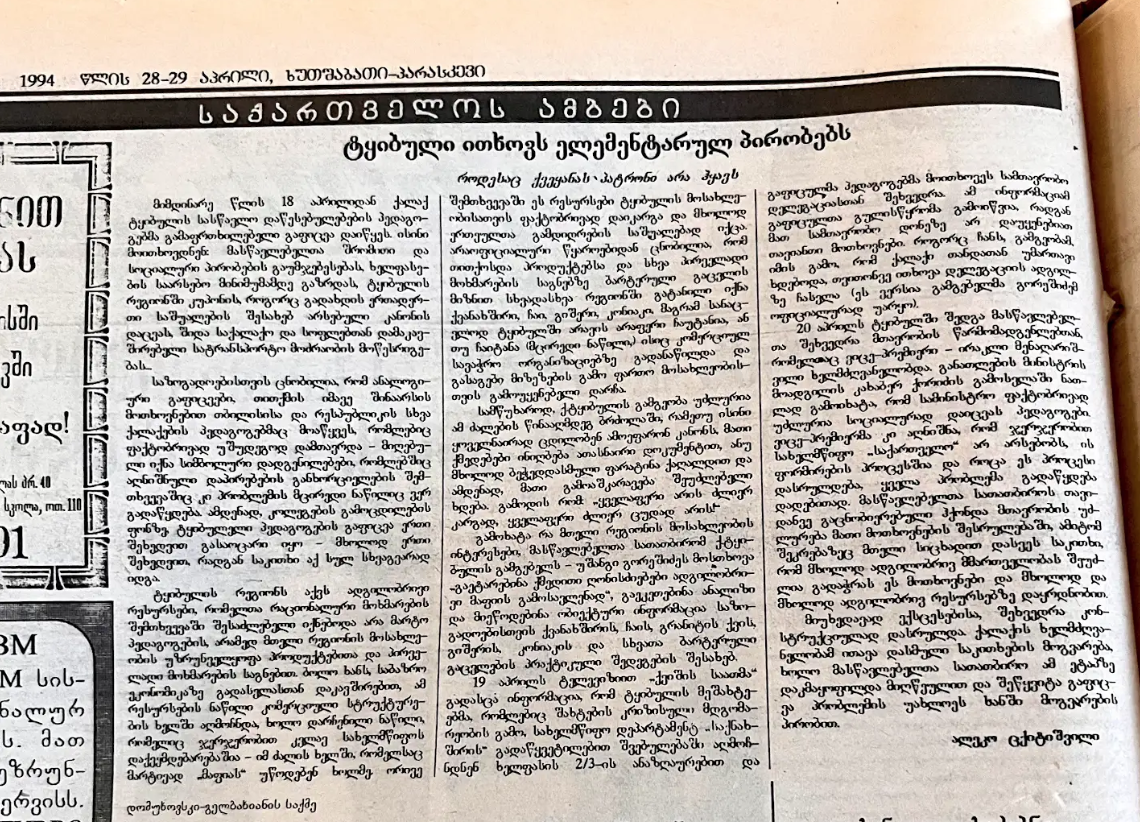 1994 წლის 28-29 აპრილი, ხუთშაბათი-პარასკევი
საქართველოს ამბები
ნით
ას
ისში
ვში
აფად!
ლას ქრ. 40
სკოლა, ოთ. 110
01
ЗМ
М სის-
ნალურ
ს. მათ
უზრუნ-
ერვისს.
ტყიბული ითხოვს ელემენტარულ პირობებს
როდესაც ქვეყანას პატრონი არა ჰყავს
მიმდინარე წლის 18 აპრილიდან ქალაქ
ტყიბულის სასწავლო დაწესებულებების პედაგო-
გებმა გამაფრთხილებელი გაფიცვა დაიწყეს. ისინი
მოითხოვდნენ: მასწავლებელთა შრომითი და
სოციალური პირობების გაუმჯობესებას, ხელფასე-
ბის საარსებო მინიმუმამდე გაზრდას, ტყიბულის
რეგიონში კუპონის, როგორც გადახდის ერთადერ-
თი საშუალების შესახებ არსებული კანონის
დაცვას, შიდა საქალაქო და სოფლებთან დამაკავ-
შირებელი სატრანსპორტო მოძრაობის მოწესრიგე-
ბას...
საზოგადოებისთვის ცნობილია, რომ ანალოგი-
ური გაფიცვები, თითქმის იმავე შინაარსის
მოთხოვნებით თბილისისა და რესპუბლიკის სხვა
ქალაქების პედაგოგებმაც მოაწყვეს, რომლებიც
ფაქტობრივად უშედეგოდ დამთავრდა – მიღებუ-
ლი იქნა სიმბოლური დადგენილებები, რომლებშიც
აღნიშნული დაპირებების განხორციელების შემ-
თხვევაშიც კი პრობლემის მცირედი ნაწილიც ვერ
გადაწყდება. ამდენად, კოლეგების გამოცდილების
ფონზე, ტყიბულელი პედაგოგების გაფიცვა ერთი
შეხედვით გასაოცარი იყო – მხოლოდ ერთი
შეხედვით, რადგან საკითხი აქ სულ სხვაგვარად
იდგა.
ტყიბულის რეგიონს აქვს ადგილობრივი
რესურსები, რომელთა რაციონალური მოხმარების
შემთხვევაში შესაძლებელი იქნებოდა არა მარტო
პედაგოგების, არამედ მთელი რეგიონის მოსახლე-
ობის უზრუნველყოფა პროდუქტებითა და პირვე-
ლადი მოხმარების საგნებით. ბოლო ხანს, საბაზრო
ეკონომიკაზე გადასვლასთან დაკავშირებით, ამ
რესურსების ნაწილი კომერციული სტრუქტურე-
ბის ხელში აღმოჩნდა, ხოლო დარჩენილი ნაწილი,
რომელიც ჯერჯერობით კვლავ სახელმწიფოს
დაქვემდებარებაშია – იმ ძალის ხელში, რომელსაც
მარტივად „მაფიას“ უწოდებენ ხოლმე. ორივე
შემთხვევაში ეს რესურსები ტყიბულის მოსახლე-
ობისათვის ფაქტობრივად დაიკარგა და მხოლოდ
ერთეულთა გამდიდრების საშუალებად იქცა.
არაოფიციალური წყაროებიდან ცნობილია, რომ
თითქოსდა პროდუქტებსა და სხვა პირველადი
მოხმარების საგნებზე ბარტერული გაცვლის
მიზნით სხვადასხვა რეგიონში გატანილი იქნა
ქვანახშირი, ჩაი, გიშერი, კონიაკი, მაგრამ სანაც-
ვლოდ ტყიბულში არავის არაფერი ჩაუტანია, ან
თუ ჩაიტანა (მცირედი ნაწილი,) ისიც კომერციულ
სავაჭრო ორგანიზაციებზე გადანაწილდა და
გასაგები მიზეზების გამო ფართო მოსახლეობის-
თვის გამოუყენებელი დარჩა.
სამწუხაროდ, ქ.ტყიბულის გამგეობა უძლურია
ამ ძალების წინააღმდეგ ბრძოლაში, რამეთუ ისინი
ყოველნაირად ცდილობენ ამოეფარონ კანონს, მათი
ქმედებები ინიღბება ათასნაირი დოკუმენტით, ანუ
მხოლოდ ბეჭედდასმული ფარატინა ქაღალდით და
ამდენად, მათი გამოაშკარავება შეუძლებელი
ხდება. გამოდის რომ „ყველაფერი არის ძლიერ
კარგად, ყველაფერი ძლიერ ცუდად არის!“
გამოხატა რა მთელი რეგიონის მოსახლეობის
ინტერესები, მასწავლებელთა სათათბირომ ქ.ტყი-
ბულის გამგებელს – უშანგი გორეშიძეს მოსთხოვა
„გაეტარებინა ქმედითი ღონისძიებები ადგილობრი-
ვი მაფიის გამოსავლენად“, გაეკეთებინა ანალიზი
და მიეწოდებინა ობიექტური ინფორმაცია საზო-
გადოებისთვის ქვანახშირის, ჩაის, გრანიტის ქვის,
გიშერის, კონიაკის და სხვათა ბარტერული
გაცვლების პრაქტიკული შედეგების შესახებ.
19 აპრილს ტელევიზიით „ქვიშის საათმა“
გადასცა ინფორმაცია, რომ ტყიბულის მეშახტე-
ებმა, რომლებიც შახტების კრიზისული მდგომა-
რეობის გამო, სახელმწიფო დეპარტამენტ „საქნახ-
შირის“ გადაწყვეტილებით შვებულებაში აღმოჩ-
ნდნენ ხელფასის 2/3-ის ანაზღაურებით და
გაფიცულმა პედაგოგებმა მოითხოვეს სამთავრობო
დელეგაციასთან შეხვედრა. ამ ინფორმაციამ
გაფიცულთა გულისწყრომა გამოიწვია, რადგან
მათ სამთავრობო დონეზე არ დაუყენებიათ
თავიანთი მოთხოვნები. როგორც ჩანს, გამგეობამ,
იმის გამო, რომ ქალაქი თანდათან უმართავი
ხდებოდა, თვითონვე ითხოვა დელეგაციის ადგილ-
ზე ჩასვლა (ეს ვერსია გამგებელმა გორეშიძემ
ოფიციალურად უარყო).
20 აპრილს ტყიბულში შედგა მასწავლებელ-
თა შეხვედრა მთავრობის წარმომადგენლებთან,
რომელთაც ვიცე-პრემიერი – ირაკლი მენაღარიშ-
ვილი ხელმძღვანელობდა. განათლების მინისტრის
მოადგილის კახაბერ ქორიძის გამოსვლაში ნათ-
ლად გამოიხატა, რომ სამინისტრო ფაქტობრივად
უძლურია სოციალურად დაიცვას პედაგოგები.
ვიცე-პრემიერმა კი აღნიშნა, რომ ჯერჯერობით
სახელმწიფო „საქართველო“ არ არსებობს, ის
ფორმირების პროცესშია და როცა ეს პროცესი
დასრულდება, ყველა პრობლემა გადაწყდება
დადებითად. მასწავლებელთა სათათბიროს თავი-
დანვე გაცნობიერებული ჰქონდა მთავრობის უძ-
ლურება მათი მოთხოვნების შესრულებაში, ამიტომ
შეკრებაზეც მთელი სიცხადით დასვეს საკითხი,
რომ მხოლოდ ადგილობრივ მმართველობას შეუძ-
ლია გადაჭრას ეს მოთხოვნები და მხოლოდ და
მხოლოდ ადგილობრივ რესურსებზე დაყრდნობით.
მიუხედავად ექსცესებისა, შეხვედრა კონ-
სტრუქციულად დასრულდა. ქალაქის ხელმძღვა-
ნელობამ ითავა დასმული საკითხების მოგვარება,
ხოლო მასწავლებელთა სათათბირო ამ ეტაპზე
დაკმაყოფილდა მიღწეულით და შეწყვიტა გაფიც-
ვა პრობლემის უახლოეს ხანში მოგვარების
პირობით.
ალეკო ცქიტიშვილი
დომუხოვსკი-გელბახიანის საქმე